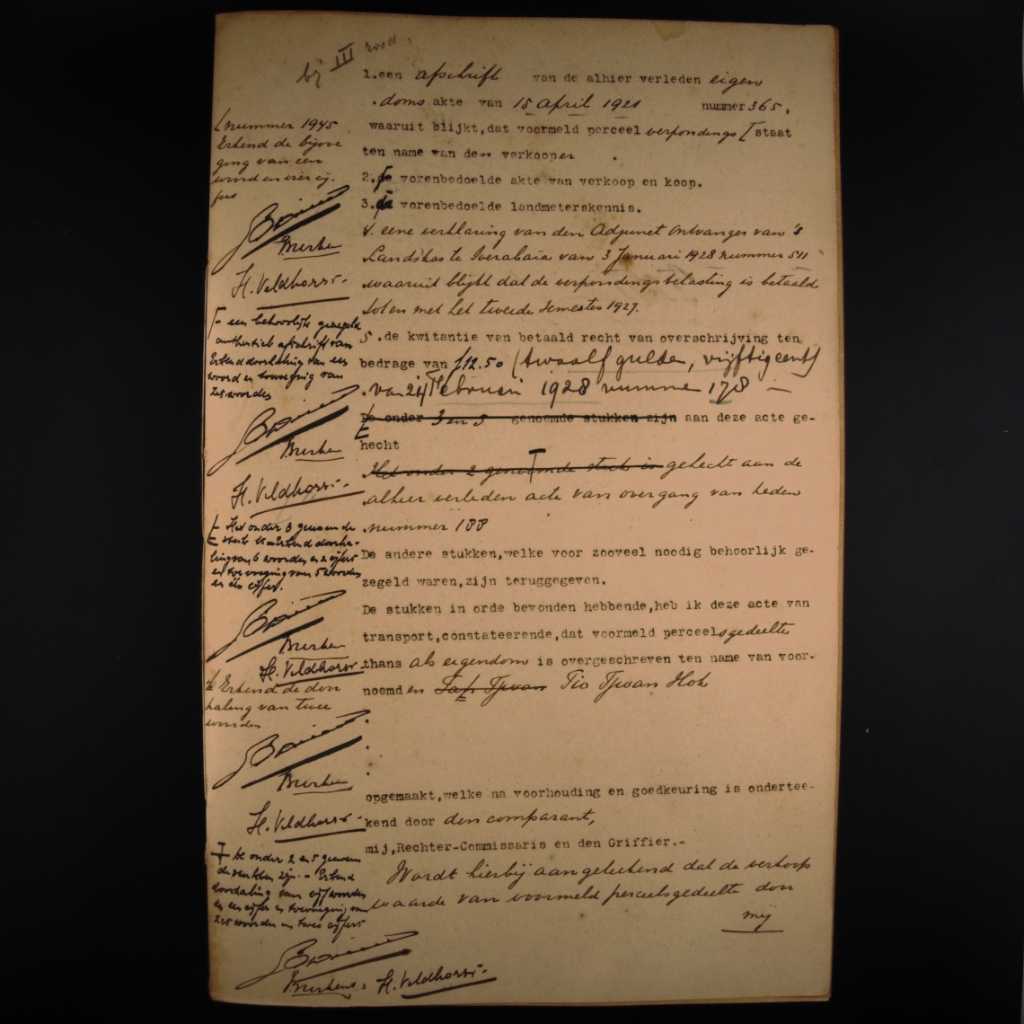 bij III rood.
1. een afschrift van de alhier verleden eigen
doms akte van 15 April 1921 nummer 365,
waaruit blijkt, dat voormeld perceel verpondings [ staat
ten name van den verkooper
2. de vorenbedoelde akte van verkoop en koop.
3. de vorenbedoelde landmeterskennis.
4. eene verklaring van den Adjunct Ontvanger van 's
Lands kas te Soerabaia van 3 Januari 1928 nummer 511
waaruit blijkt dat de verpondingsbelasting is betaald
tot en met het tweede semester 1927.
5. de kwitantie van betaald recht van overschrijving ten
bedrage van f 12.50 (twaalf gulden, vijftig cent)
van 24 Februari 1928 nummer 178 —
De onder 3 en 5 genoemde stukken zijn aan deze acte ge-
hecht
Het onder 2 genoemde stuk is gehecht aan de
alhier verleden acte van overgang van heden
nummer 188
De andere stukken, welke voor zooveel noodig behoorlijk ge-
zegeld waren, zijn teruggegeven.
De stukken in orde bevonden hebbende, heb ik deze acte van
transport, constateerende, dat voormeld perceelsgedeelte
thans als eigendom is overgeschreven ten name van voor-
noemd en Tjwan Tio Tjwan Hok
opgemaakt, welke na voorhouding en goedkeuring is onderte-
kend door den comparant,
mij, Rechter-Commissaris en den Griffier.-
Wordt hierbij aangeteekend dat de verkoop
waarde van voormeld perceelsgedeelte door
mij
[ nummer 1945
Erkend de bijvoe
ging van een
woord en vier cij-
fers
H. Veldhorst
een behoorlijk gezegeld
authentiek afschrift van
Erkend doorhaling van een
woord en toevoeging van
zes woorden
H. Veldhorst
Het onder 3 genoemde
stuk is Erkend doorha-
ling van 6 woorden en 2 cijfers
en toevoeging van 5 woorden
en één cijfer.
H. Veldhorst
Erkend de door
haling van twee
woorden
H. Veldhorst
de onder 2 en 5 genoem
de stukken zijn. - Erkend
doorhaling van vijf woorden
en een cijfer en toevoeging van
zes woorden en twee cijfers
H. Veldhorst